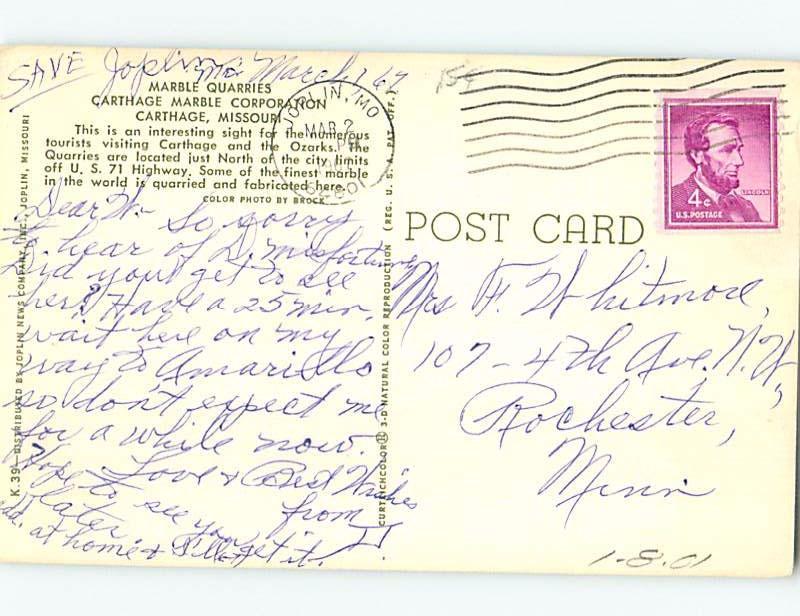 SAVE Joplin Mo March 1
15¢
MARBLE QUARRIES
CARTHAGE MARBLE CORPORATION
CARTHAGE, MISSOURI
This is an interesting sight for the numerous
tourists visiting Carthage and the Ozarks. The
Quarries are located just North of the city limits
off U. S. 71 Highway. Some of the finest marble
in the world is quarried and fabricated here.
COLOR PHOTO BY BROCK
JOPLIN, MO
MAR 2
PM
LINCOLN
4¢
U.S. POSTAGE
POST CARD
K.39—DISTRIBUTED BY JOPLIN NEWS COMPANY, INC., JOPLIN, MISSOURI
CURTEICHCOLOR 3-D NATURAL COLOR REPRODUCTION (REG. U. S. A. PAT. OFF.)
Dear W— So sorry
to hear of D. Misfortune
Did you get to see
her? Have a 25 min.
wait here on my
way to Amarillo
so don't expect me
for a while now.
Love & Best Wishes
from
Hope to see you
later
add. at home & I'll get it.
Mrs F. Whitmore,
107-4th Ave. N.W,
Rochester,
Minn
1-8.01